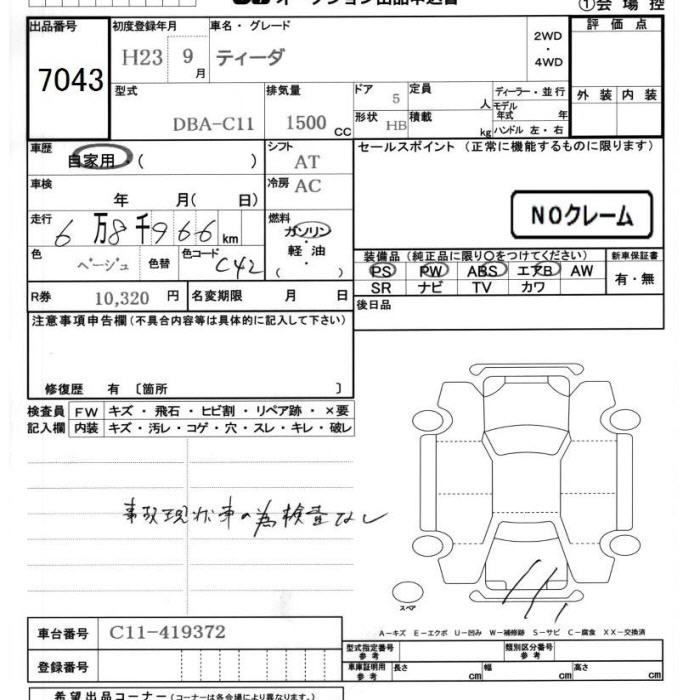 オークション出品申込書
①会場控
出品番号 初度登録年月 車名・グレード 評価点
7043 H23 9月 ティーダ 2WD・4WD
型式 排気量 ドア 定員 ディーラー・並行 外装 内装
DBA-C11 1500 CC 5 人 モデル年式 年
形状 HB 積載 kg ハンドル 左・右
車歴 自家用・( ) シフト AT セールスポイント (正常に機能するものに限ります)
車検 年 月( 日) 冷房 AC
NOクレーム
走行 6万8千966km 燃料 ガソリン・軽油・( )
色 ベージュ 色替 色コード C42
装備品 (純正品に限り○をつけてください) 新車保証書
PS PW ABS エアB AW 有・無
SR ナビ TV カワ
R券 10,320 円 名変期限 月 日 後日品
注意事項申告欄(不具合内容等は具体的に記入して下さい)
修復歴 有 〔箇所 〕
検査員 FW キズ・飛石・ヒビ割・リペア跡・×要
記入欄 内装 キズ・汚レ・コゲ・穴・スレ・キレ・破レ
事故現状車の為検査なし
スペア
A−キズ E−エクボ U−凹み W−補修跡 S−サビ C−腐食 XX−交換済
車台番号 C11-419372
型式指定番号参考 類別区分番号参考
登録番号
車庫証明用参考 長さ cm 幅 cm 高さ cm
希望出品コーナー(コーナーは各会場により異なります。)